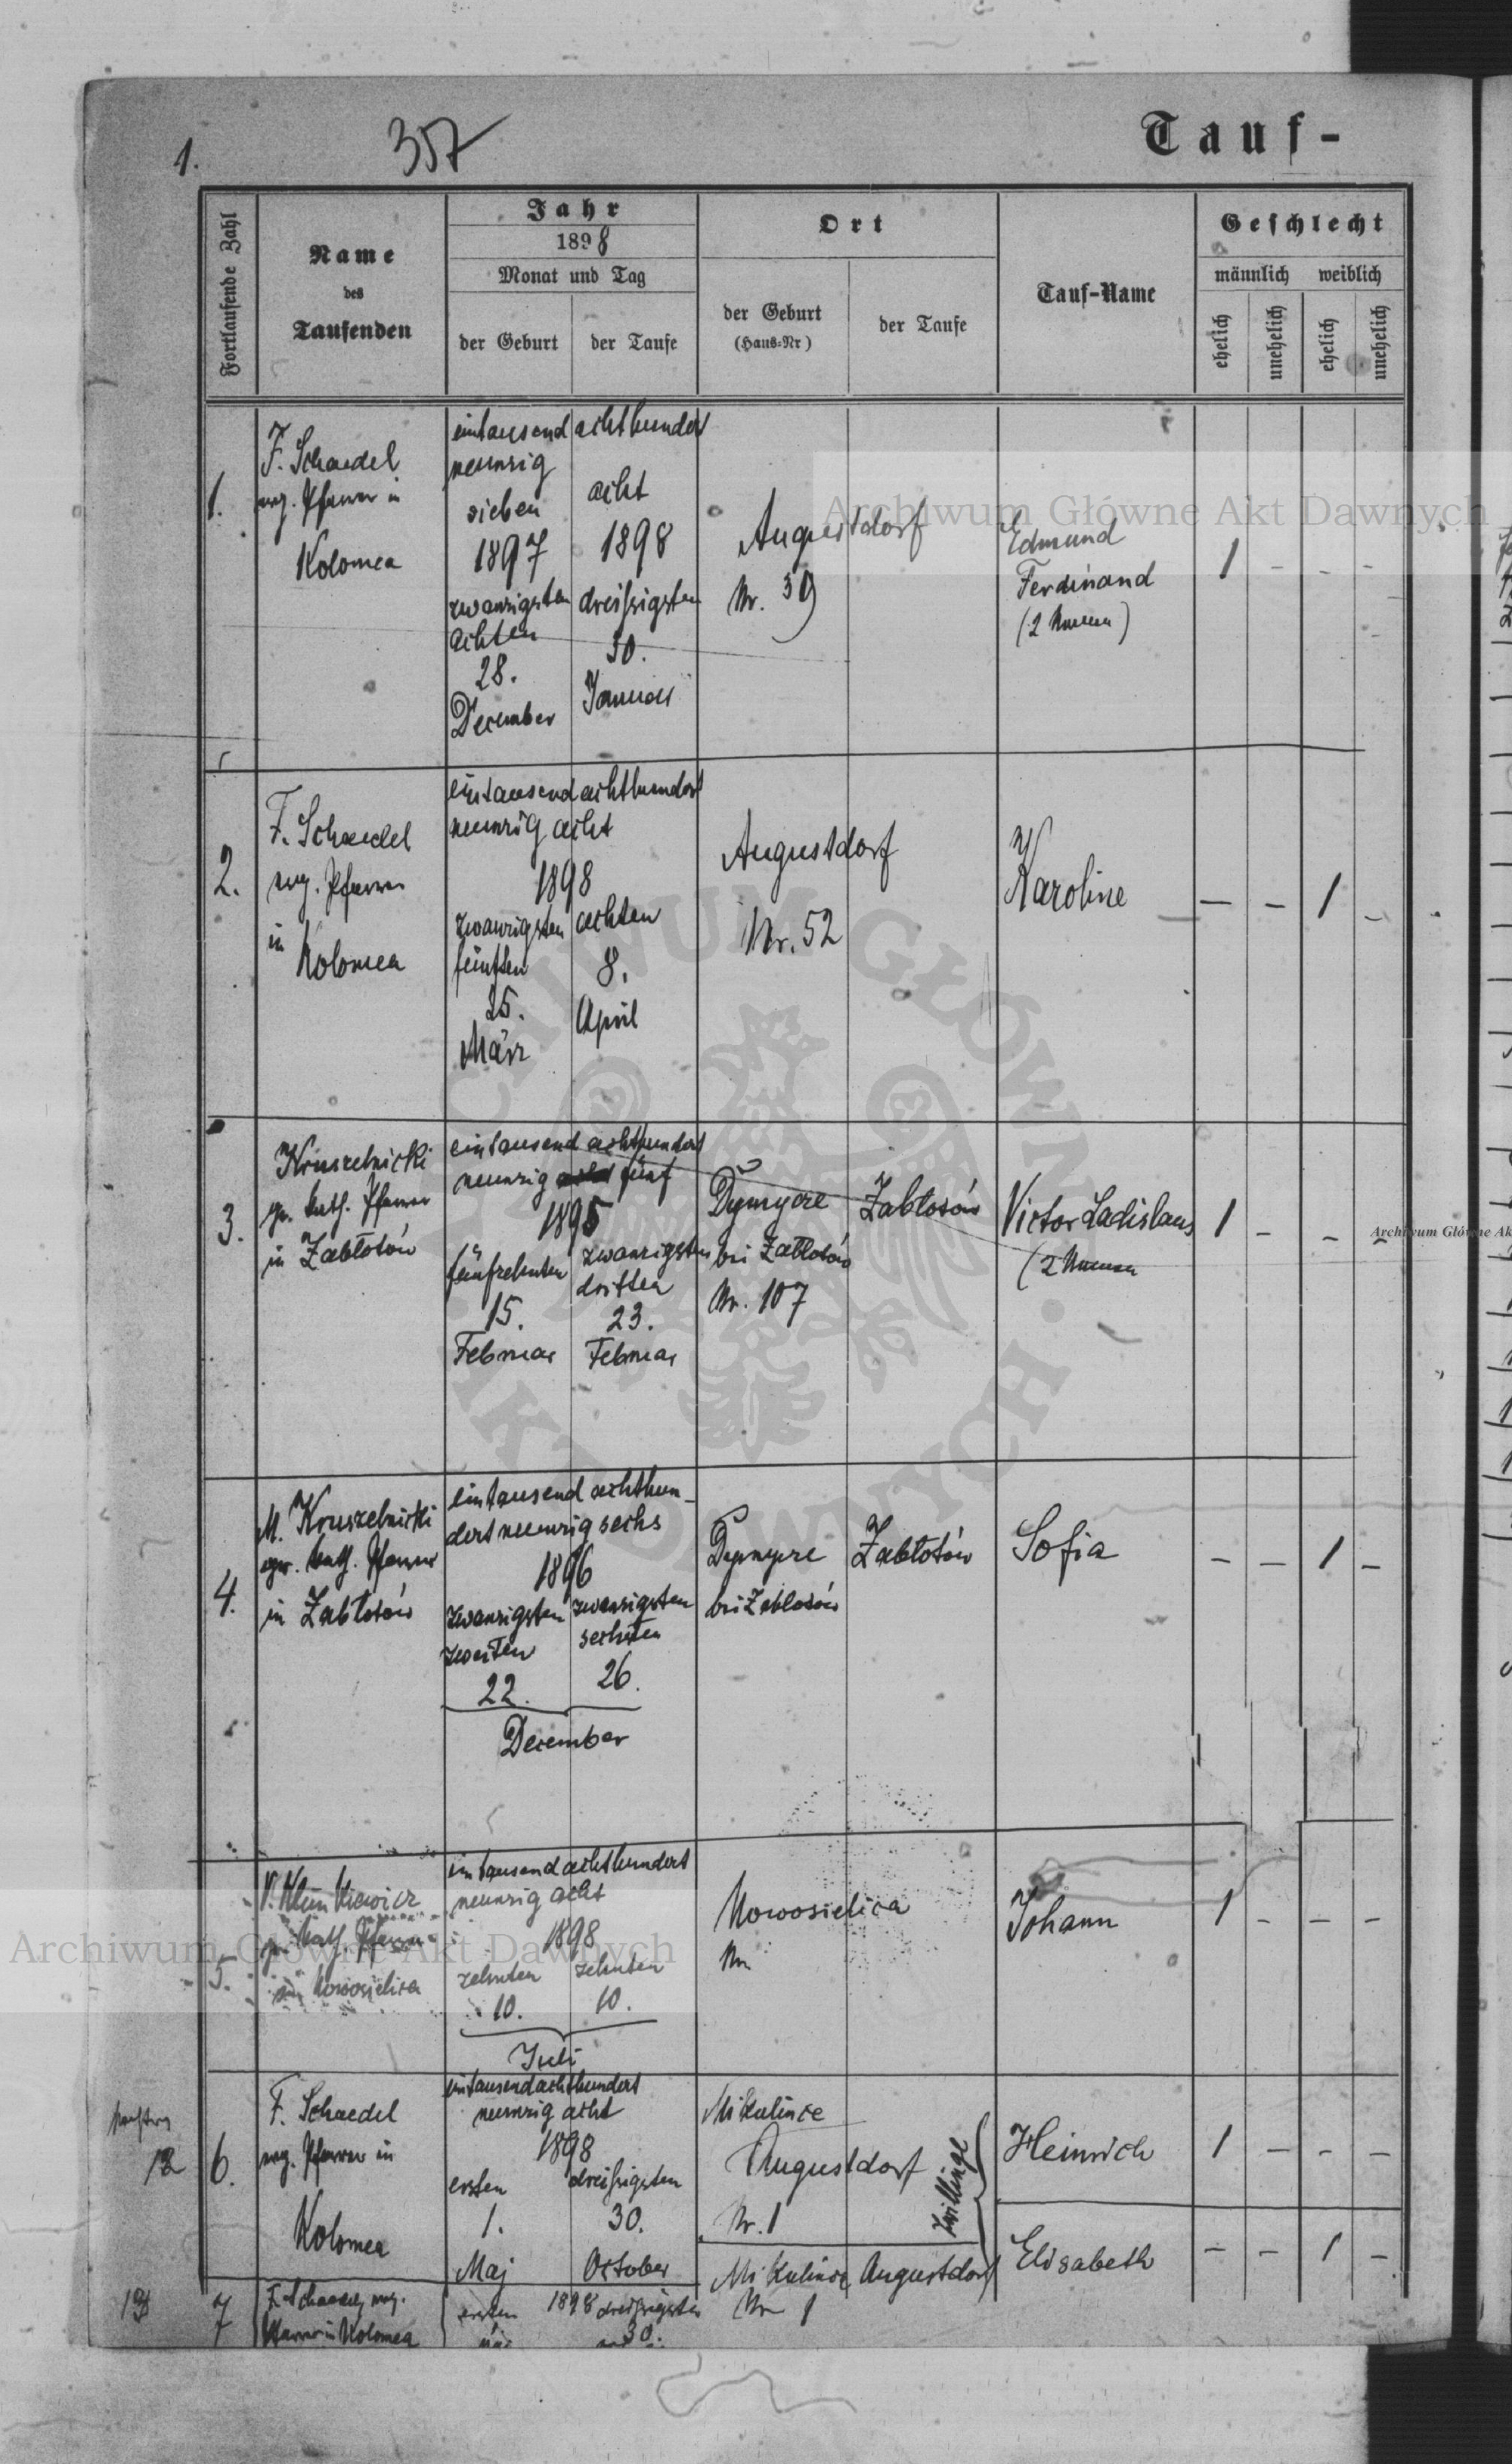 1.
357
Tauf-
Fortlaufende Zahl
Name
des
Taufenden
Jahr
1898
Monat und Tag
der Geburt
der Taufe
Ort
der Geburt
(Haus-Nr)
der Taufe
Tauf-Name
Geschlecht
männlich
weiblich
ehelich
unehelich
ehelich
unehelich
1.
F. Schaedel
evg. Pfarrer in
Kolomea
eintausend achthundert
neunzig
sieben
acht
1897
1898
zwanzigsten
dreißigsten
achten
30.
28.
Januar
December
Augustdorf
Nr. 39
Edmund
Ferdinand
(2 Namen)
1 - - -
2.
F. Schaedel
evg. Pfarrer
in
Kolomea
eintausend achthundert
neunzig acht
1898
zwanzigsten
achten
fünften
8.
25.
April
März
Augustdorf
Nr. 52
Karoline
- - 1 -
3.
Kruszelnicki
gr. kath. Pfarrer
in Zabłotów
eintausend achthundert
neunzig acht fünf
1895
fünfzehnten
zwanzigsten
dritten
15.
23.
Februar
Februar
Dymycze
bei Zabłotów
Nr. 107
Zabłotów
Victor Ladislaus
(2 Namen
1 - - -
4.
M. Kruszelnicki
gr. kath. Pfarrer
in Zabłotów
eintausend achthun-
dert neunzig sechs
1896
zwanzigsten
zwanzigsten
zweiten
sechsten
22.
26.
December
Dymycze
bei Zabłotów
Zabłotów
Sofia
- - 1 -
5.
gr. kath. Pfarrer
in Nowosielica
eintausend achthundert
neunzig acht
1898
zehnten
zehnten
10.
10.
Juli
Nowosielica
Nr.
Johann
1 - - -
12
6.
F. Schaedel
evg. Pfarrer in
Kolomea
eintausend achthundert
neunzig acht
1898
ersten
dreißigsten
1.
30.
Maj
October
Mikulince
Augustdorf
Nr. 1
Zwillinge
Heinrich
1 - - -
Mikulince
Augustdorf
Nr 1
Elisabeth
- - 1 -
13
7
F. Schaedel evg.
Pfarrer in Kolomea
ersten
1898
dreißigsten
30.
Archiwum Główne Akt Dawnych
Archiwum Główne Ak
ARCHIWUM GŁÓWNE AKT DAWNYCH
Archiwum Główne Akt Dawnych